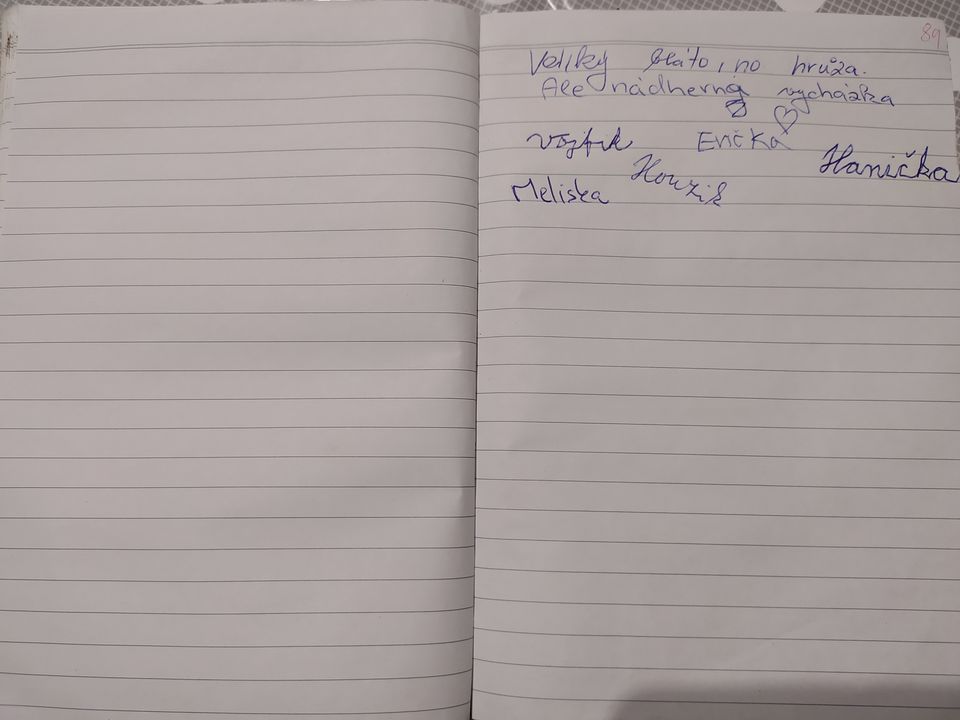 89
Veliký bláto, no hrůza.
Ale nádherná vycházka
Vojtík Evička Hanička
Meliska Honzík